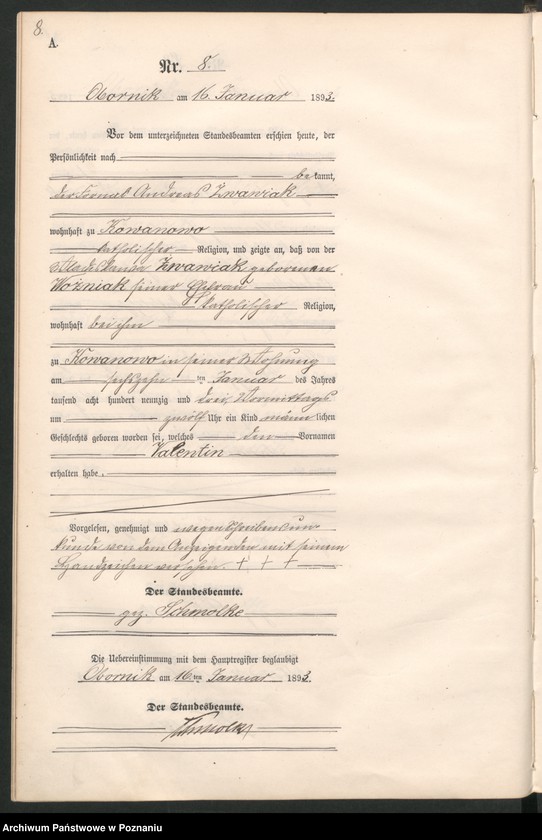 8.
A.
Nr. 8.
Obornik am 16. Januar 1893.
Vor dem unterzeichneten Standesbeamten erschien heute, der
Persönlichkeit nach
bekannt,
der Fornal Andreas Zwawiak
wohnhaft zu Kowanowo
katholischer Religion, und zeigte an, daß von der
Zwawiak geborenen
Woźniak seiner Ehefrau
katholischer Religion,
wohnhaft bei ihm
zu Kowanowo in seiner Wohnung
am sechszehn ten Januar des Jahres
tausend acht hundert neunzig und drei Vormittags
um zwölf Uhr ein Kind männlichen
Geschlechts geboren worden sei, welches den Vornamen
Valentin
erhalten habe.
Vorgelesen, genehmigt und wegen Schreibensun-
kunde von dem Anzeigenden mit seinem
Handzeichen versehen. + + +
Der Standesbeamte.
gez. Schmolke
Die Uebereinstimmung mit dem Hauptregister beglaubigt
Obornik am 16. ten Januar 1893.
Der Standesbeamte.
Schmolke
Archiwum Państwowe w Poznaniu